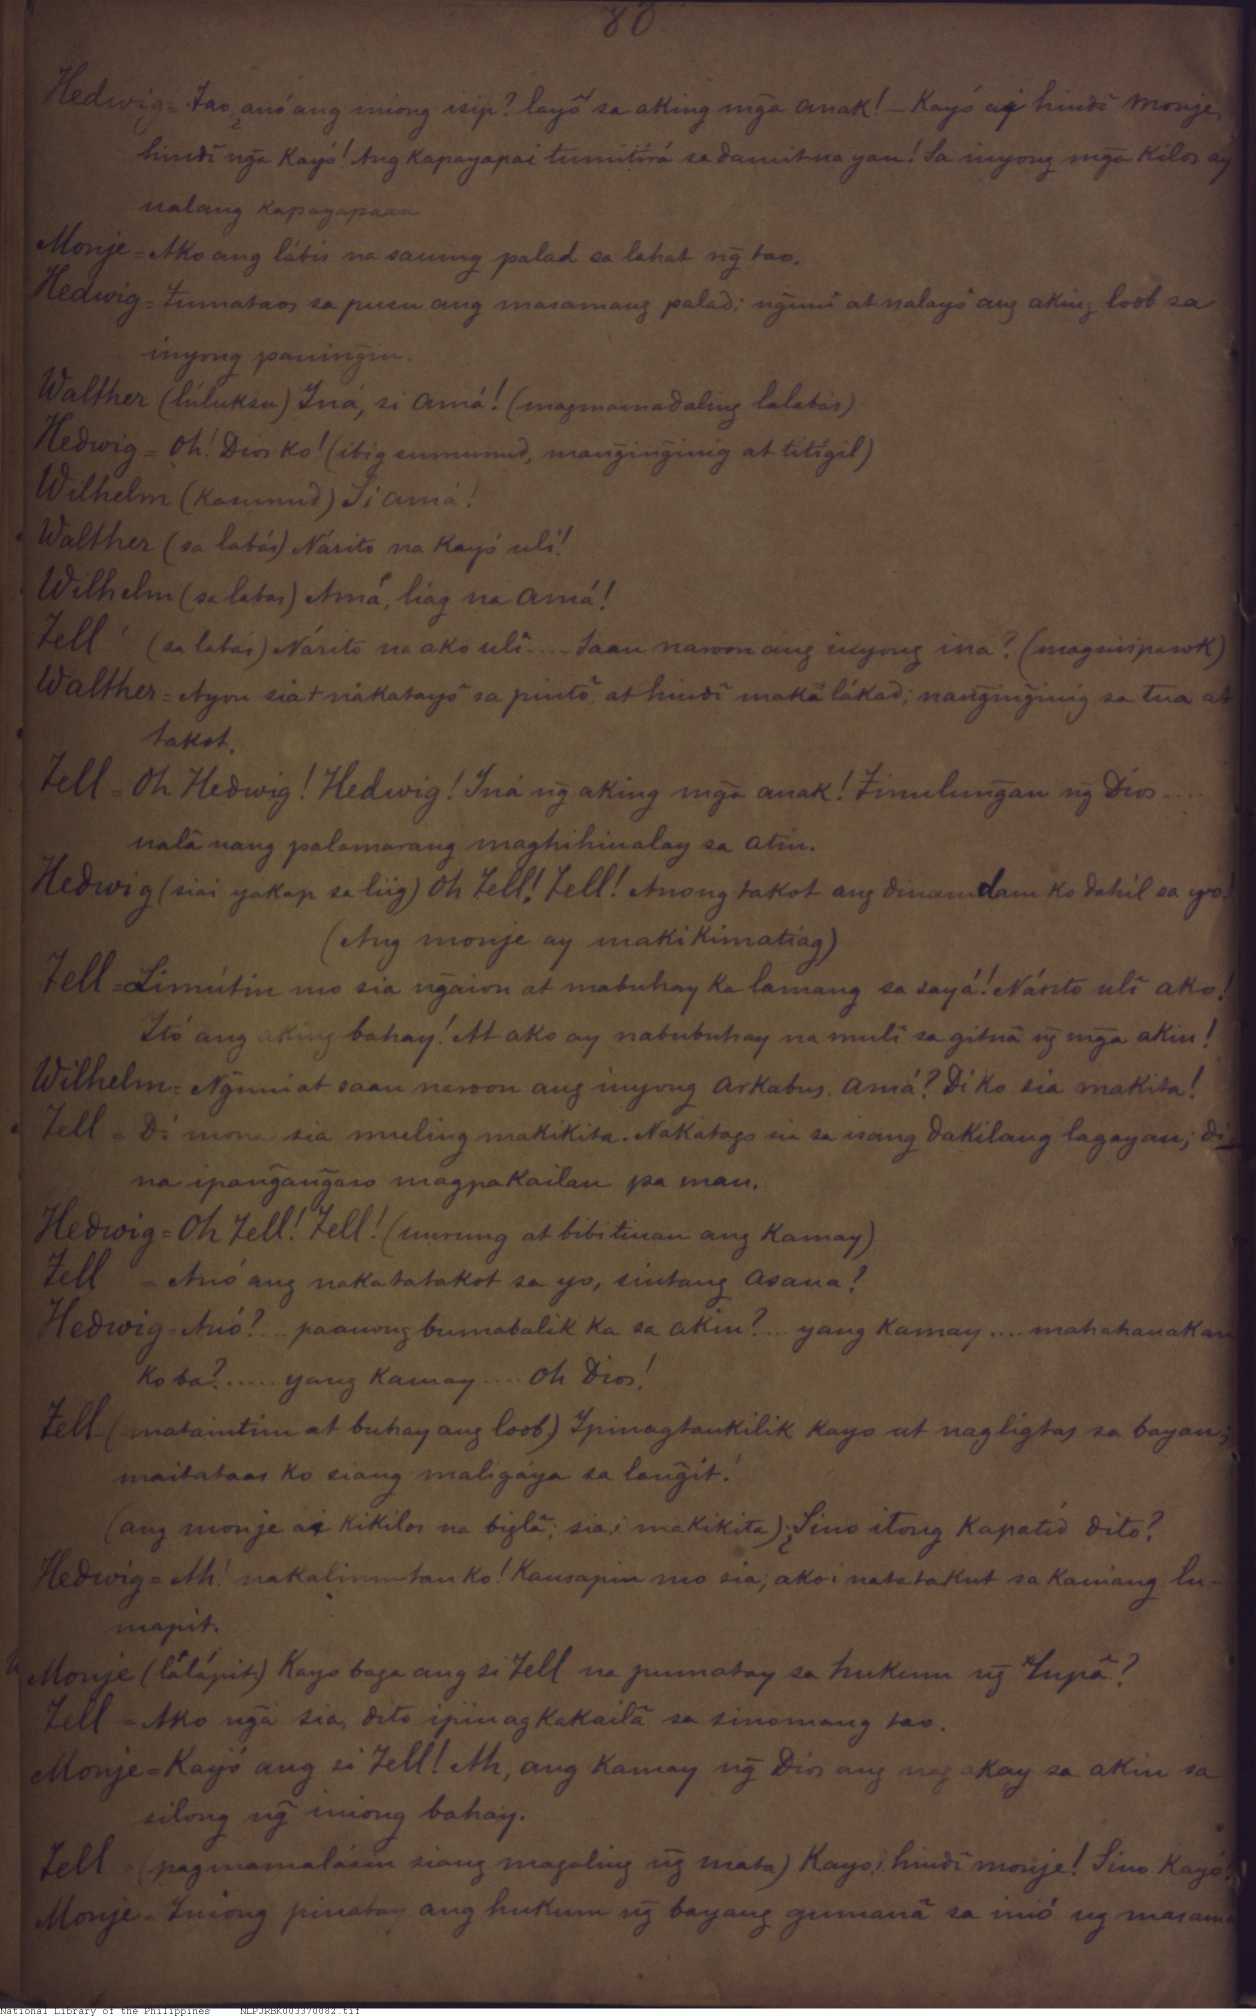 80
Hedwig = Tao, anó ang iniong isip? layô sa aking mg̃a anak! – Kayó ay hindî monje,
hindî ng̃a kayó! Ang kapayapai tumitirá sa damit na yan! Sa inyong mg̃a kilos ay
ualang kapayapaan
Monje = Ako ang lábis na sauing palad sa lahat ng̃ tao.
Hedwig = Tumataos sa pusu ang masamang palad; ng̃uni at nalayô ang aking loob sa
inyong paning̃in.
Walther (lúluksu) Iná, si amá! (magmamadaling lalabás)
Hedwig = Oh! Dios ko! (ibig sumunud, mang̃ing̃inig at titígil)
Wilhelm (kasunud) Si amá!
Walther (sa labás) Nárito na kayó ulî!
Wilhelm (sa labas) Amá, liag na amá!
Tell (sa labás) Nárito na ako ulî .... Saan naroon ang inyong ina? (magsisipasok)
Walther = Ayon siá't nákatayô sa pintô at hindî maká lákad; nang̃ing̃inig sa tua at
takot.
Tell = Oh Hedwig! Hedwig! Iná ng̃ aking mg̃a anak! Tinulung̃an ng̃ Díos ....
ualâ nang palamarang maghihiualay sa atin.
Hedwig (siai yakap sa liig) Oh Tell! Tell! Anong takot ang dinamdam ko dahíl sa yo!
(Ang monje ay makikimatiag)
Tell = Limútin mo sia ng̃aion at mabuhay ka lamang sa sayá! Nárito ulî ako!
Itó ang aking bahay! At ako ay nabubuhay na mulî sa gitnâ ng̃ mg̃a akin!
Wilhelm = Ng̃uniat saan naroon ang inyong arkabus, amá? Dí ko sia makita!
Tell = Dí mona sia mueling makikita. Nakatago sia sa isang dakilang lagayan; di
na ipang̃ang̃aso magpakailan pa man.
Hedwig = Oh Tell! Tell! (uurung at bibitiuan ang kamay)
Tell = Anó ang nakatatakot sa yo, sintang asaua?
Hedwig = Anó? ... paanong bumabalik ka sa akin? ... yang kamay .... mahahauakan
ko ba? ...... yang kamay .... Oh Dios!
Tell (mataimtim at buhay ang loob) Ipinagtankilik kayo at nagligtas sa bayan;
maitataas ko siang maligáya sa lang̃it!
(ang monje ai kikilos na biglâ; sia i makikita) ¿Sino itong kapatíd dito?
Hedwig = Ah! nakalimutan ko! Kausapin mo sia; ako i natatakut sa kaniang lu-
mapit.
Monje (lálápit) Kayo baga ang si Tell na pumatay sa hukum ng̃ Lupâ?
Tell = Ako ng̃a sia, dito ipinagkakailâ sa sinomang tao.
Monje = Kayó ang si Tell! Ah, ang kamay ng̃ Dios ang nag akay sa akin sa
silong ng̃ iniong bahay.
Tell = (pagmamalásin siang magaling ng̃ mata) Kayo i hindî monje! Sino kayó?
Monje = Iniong pinatay ang hukum ng̃ bayang gumauâ sa inió ng masama
National Library of the Philippines NLPJRBK003370082.tif